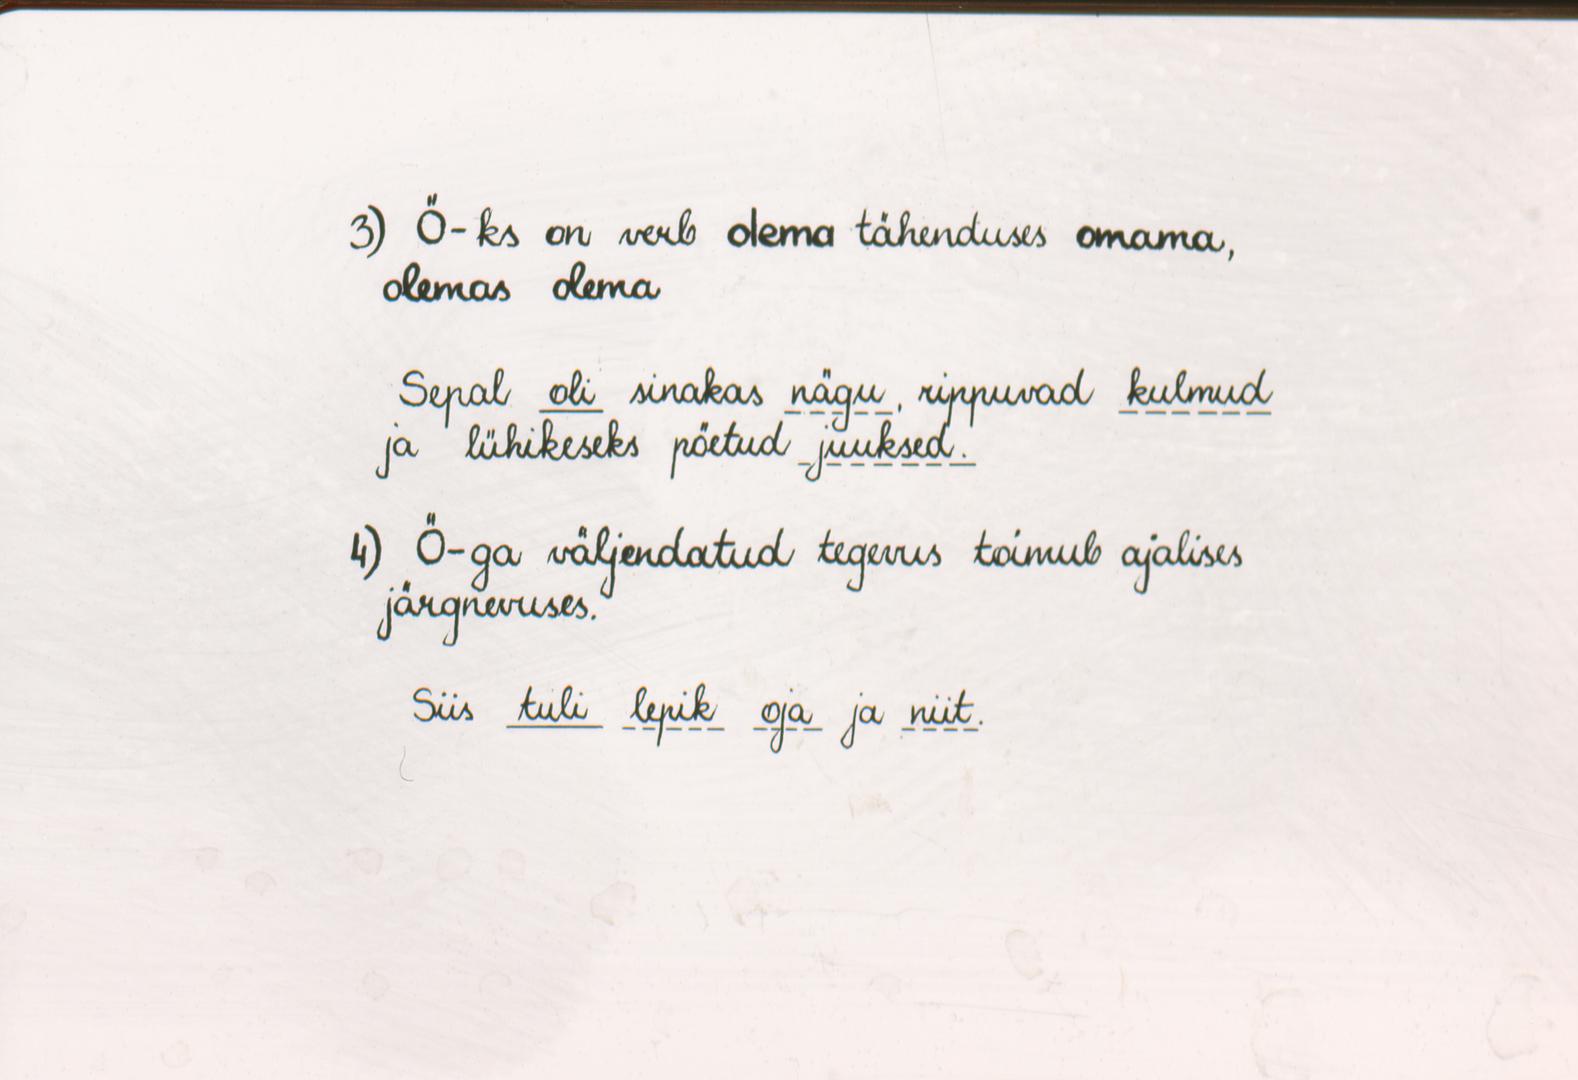 3) Ö-ks on verb olema tähenduses omama,
olemas olema
Sepal oli sinakas nägu, rippuvad kulmud
ja lühikeseks pöetud juuksed.
4) Ö-ga väljendatud tegevus toimub ajalises
järgnevuses.
Siis tuli lepik oja ja niit.